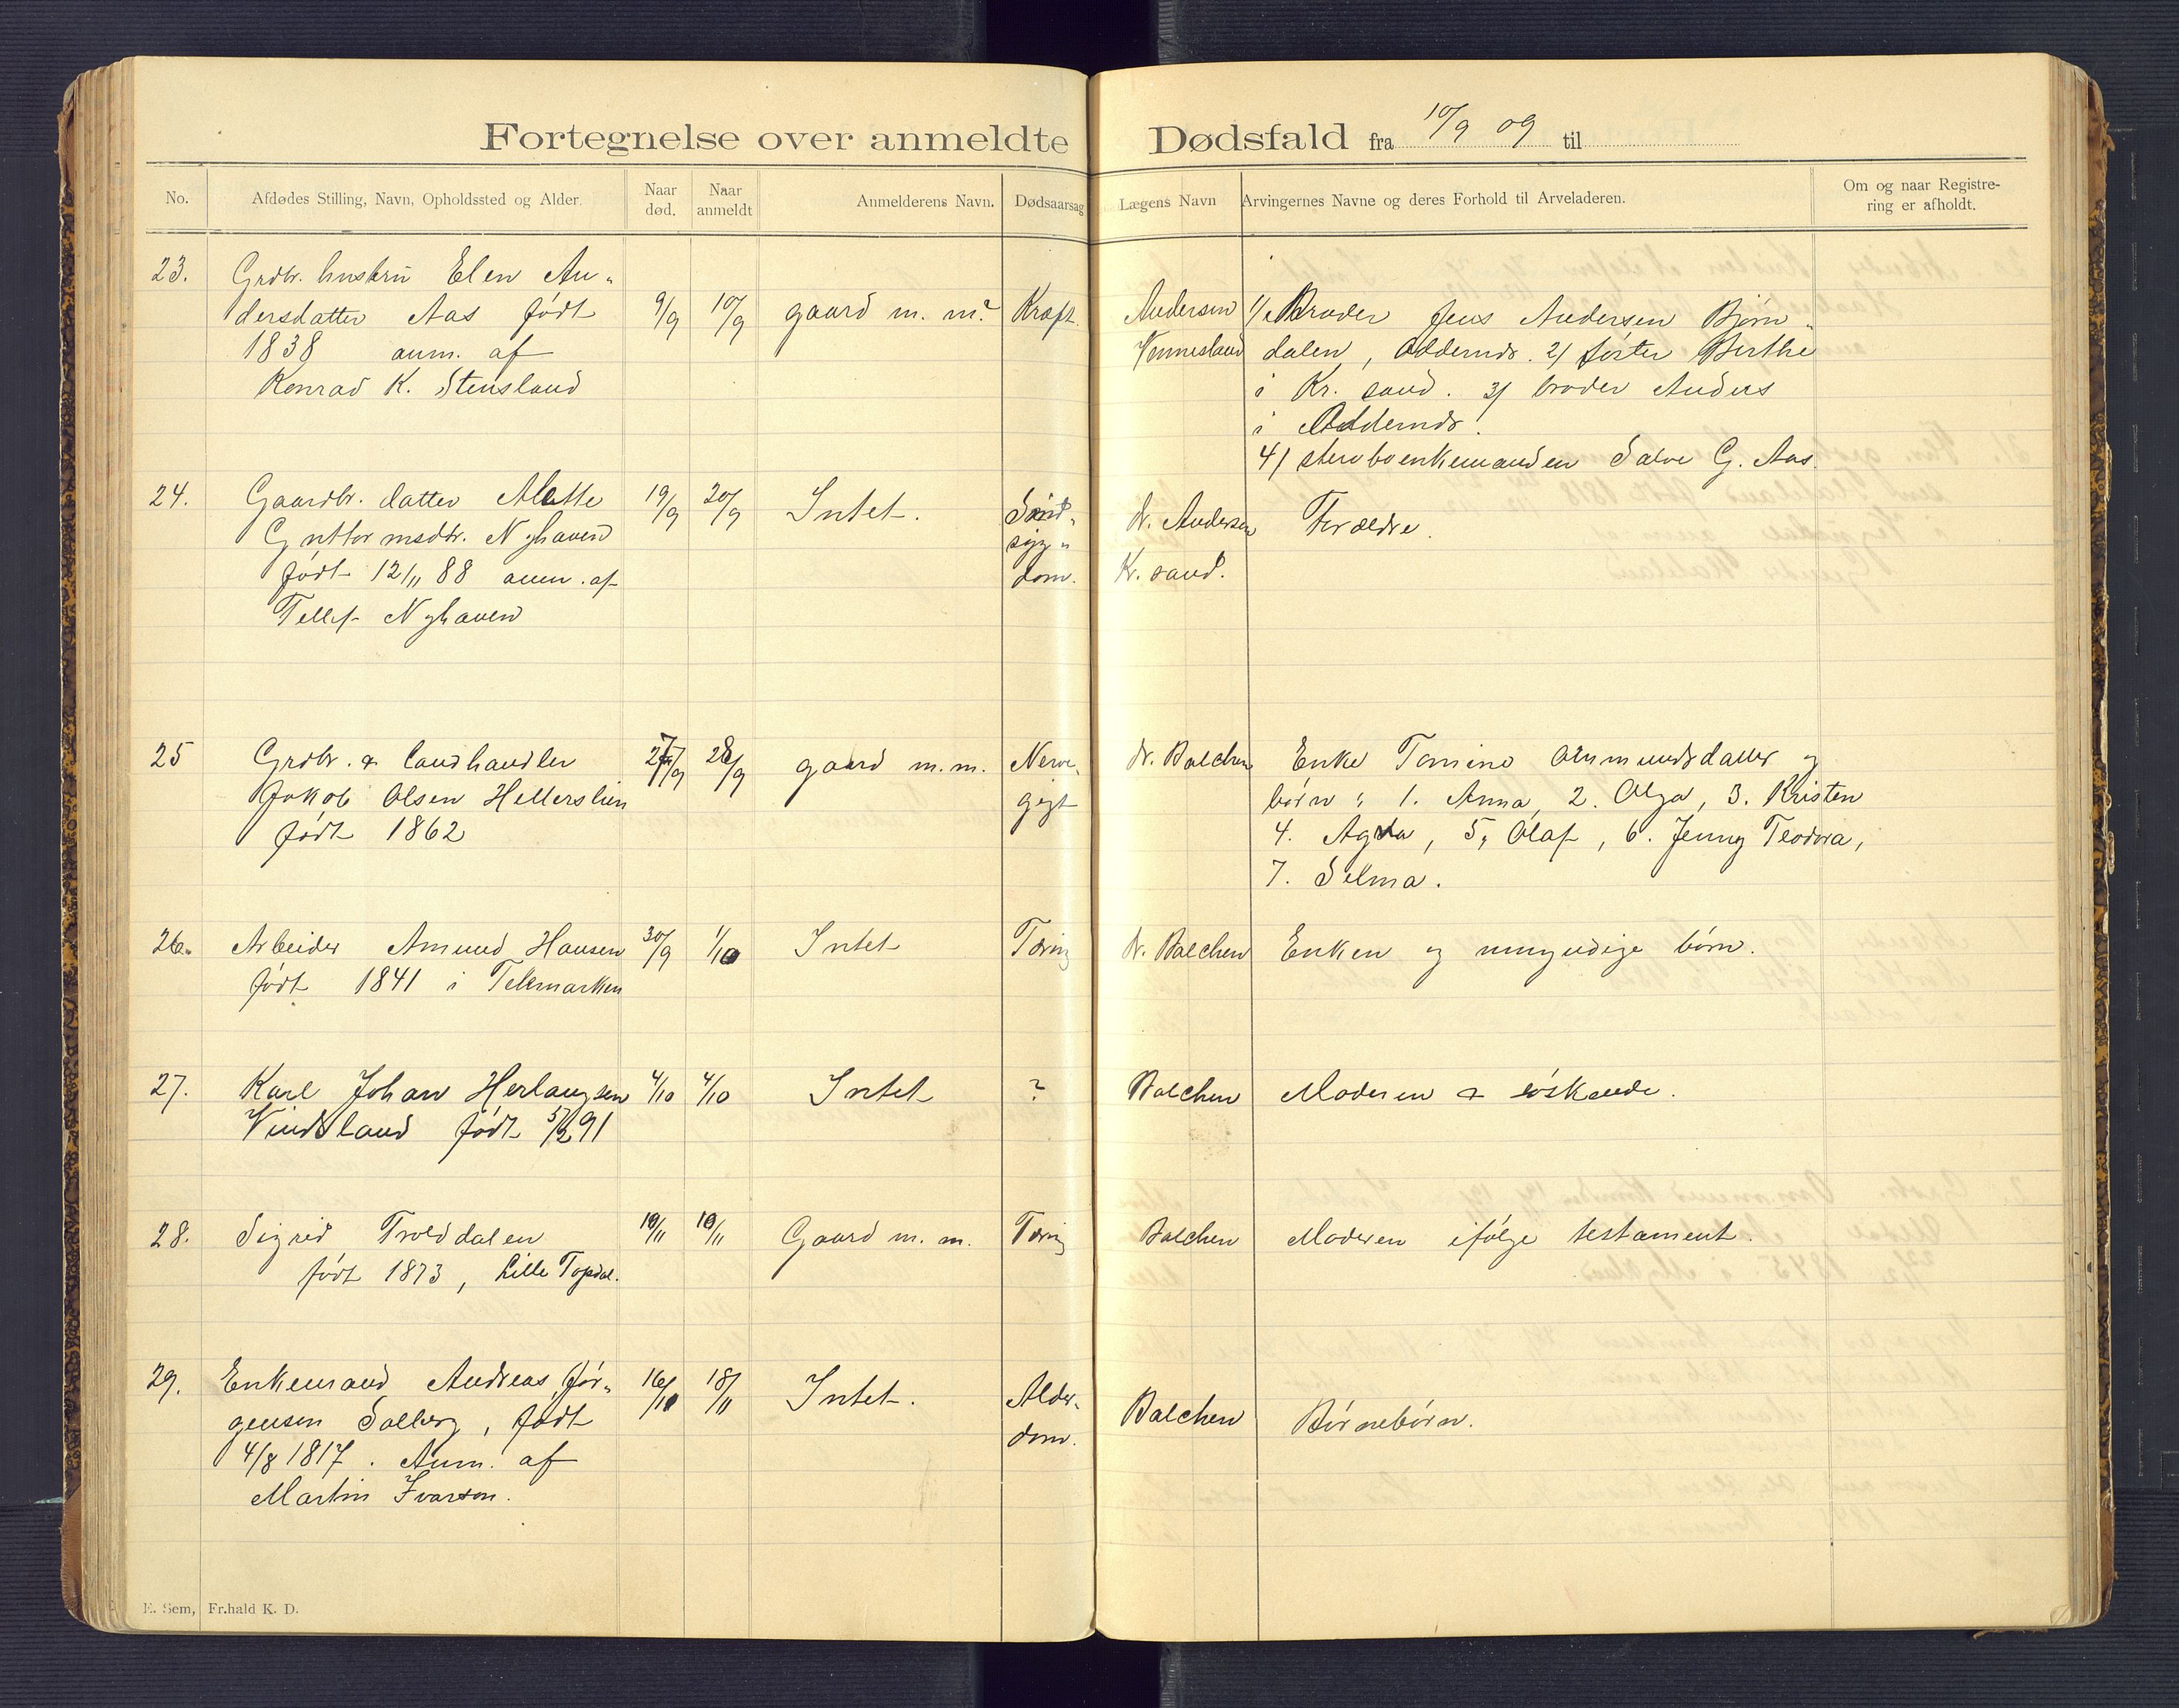 Fortegnelse over anmeldte Dødsfald fra 10/9 09 til
No. Afdødes Stilling, Navn, Opholdssted og Alder. Naar død. Naar anmeldt Anmelderens Navn. Dødsaarsag Lægens Navn Arvingernes Navne og deres Forhold til Arveladeren. Om og naar Registrering er afholdt.
23. Grdbr. hustru Elen An-
dersdatter Aas født 9/9 10/9 gaard m. m. Kræft. Andersen 1/ Broder Jens Andersen Bjørn-
1838 anm. af Vennesland dalen, Oddernds. 2/ søster Berthe
Konrad K. Stensland i Kr. sand. 3/ broder Anders
i Oddernds.
4/ stervboenkemanden Salve G. Aas.
24. Gaardbr. datter Alette 19/9 20/9 Intet. Sind-
Guttormsdtr. Nyhaven syg- dr. Andersen Forældre.
født 12/11 88 anm. af dom. Kr. sand.
Tellef Nyhaven
25 Grdbr. & landhandler 27/9 28/9 gaard m.m. Nerve- dr. Balchen Enke Tomine Aanmundsdatter og
Jakob Olsen Hellerslien gigt børn: 1. Anna, 2. Olga, 3. Kristen
født 1862 4. Agda, 5, Olaf, 6. Jenny Teodora,
7. Selma.
26. Arbeider Amund Hansen 30/9 1/10 Intet Tæring dr. Balchen Enken og umyndige børn.
født 1841 i Telemarken
27. Karl Johan Herlaugsen 4/10 4/10 Intet ? Balchen Moderen & søskende.
Vindsland født 5/2 91
28. Sigrid Trolddalen 10/11 10/11 Gaard m. m. Tæring Balchen Moderen ifølge testament.
født 1873, Lille Topdal.
29. Enkemand Andreas Jør- 16/11 18/11 Intet. Alder-
gensen Solberg, født dom. Balchen Børnebørn.
4/8 1817. Anm. af
Martin Ivarson.
E. Sem, Fr.hald K. D.